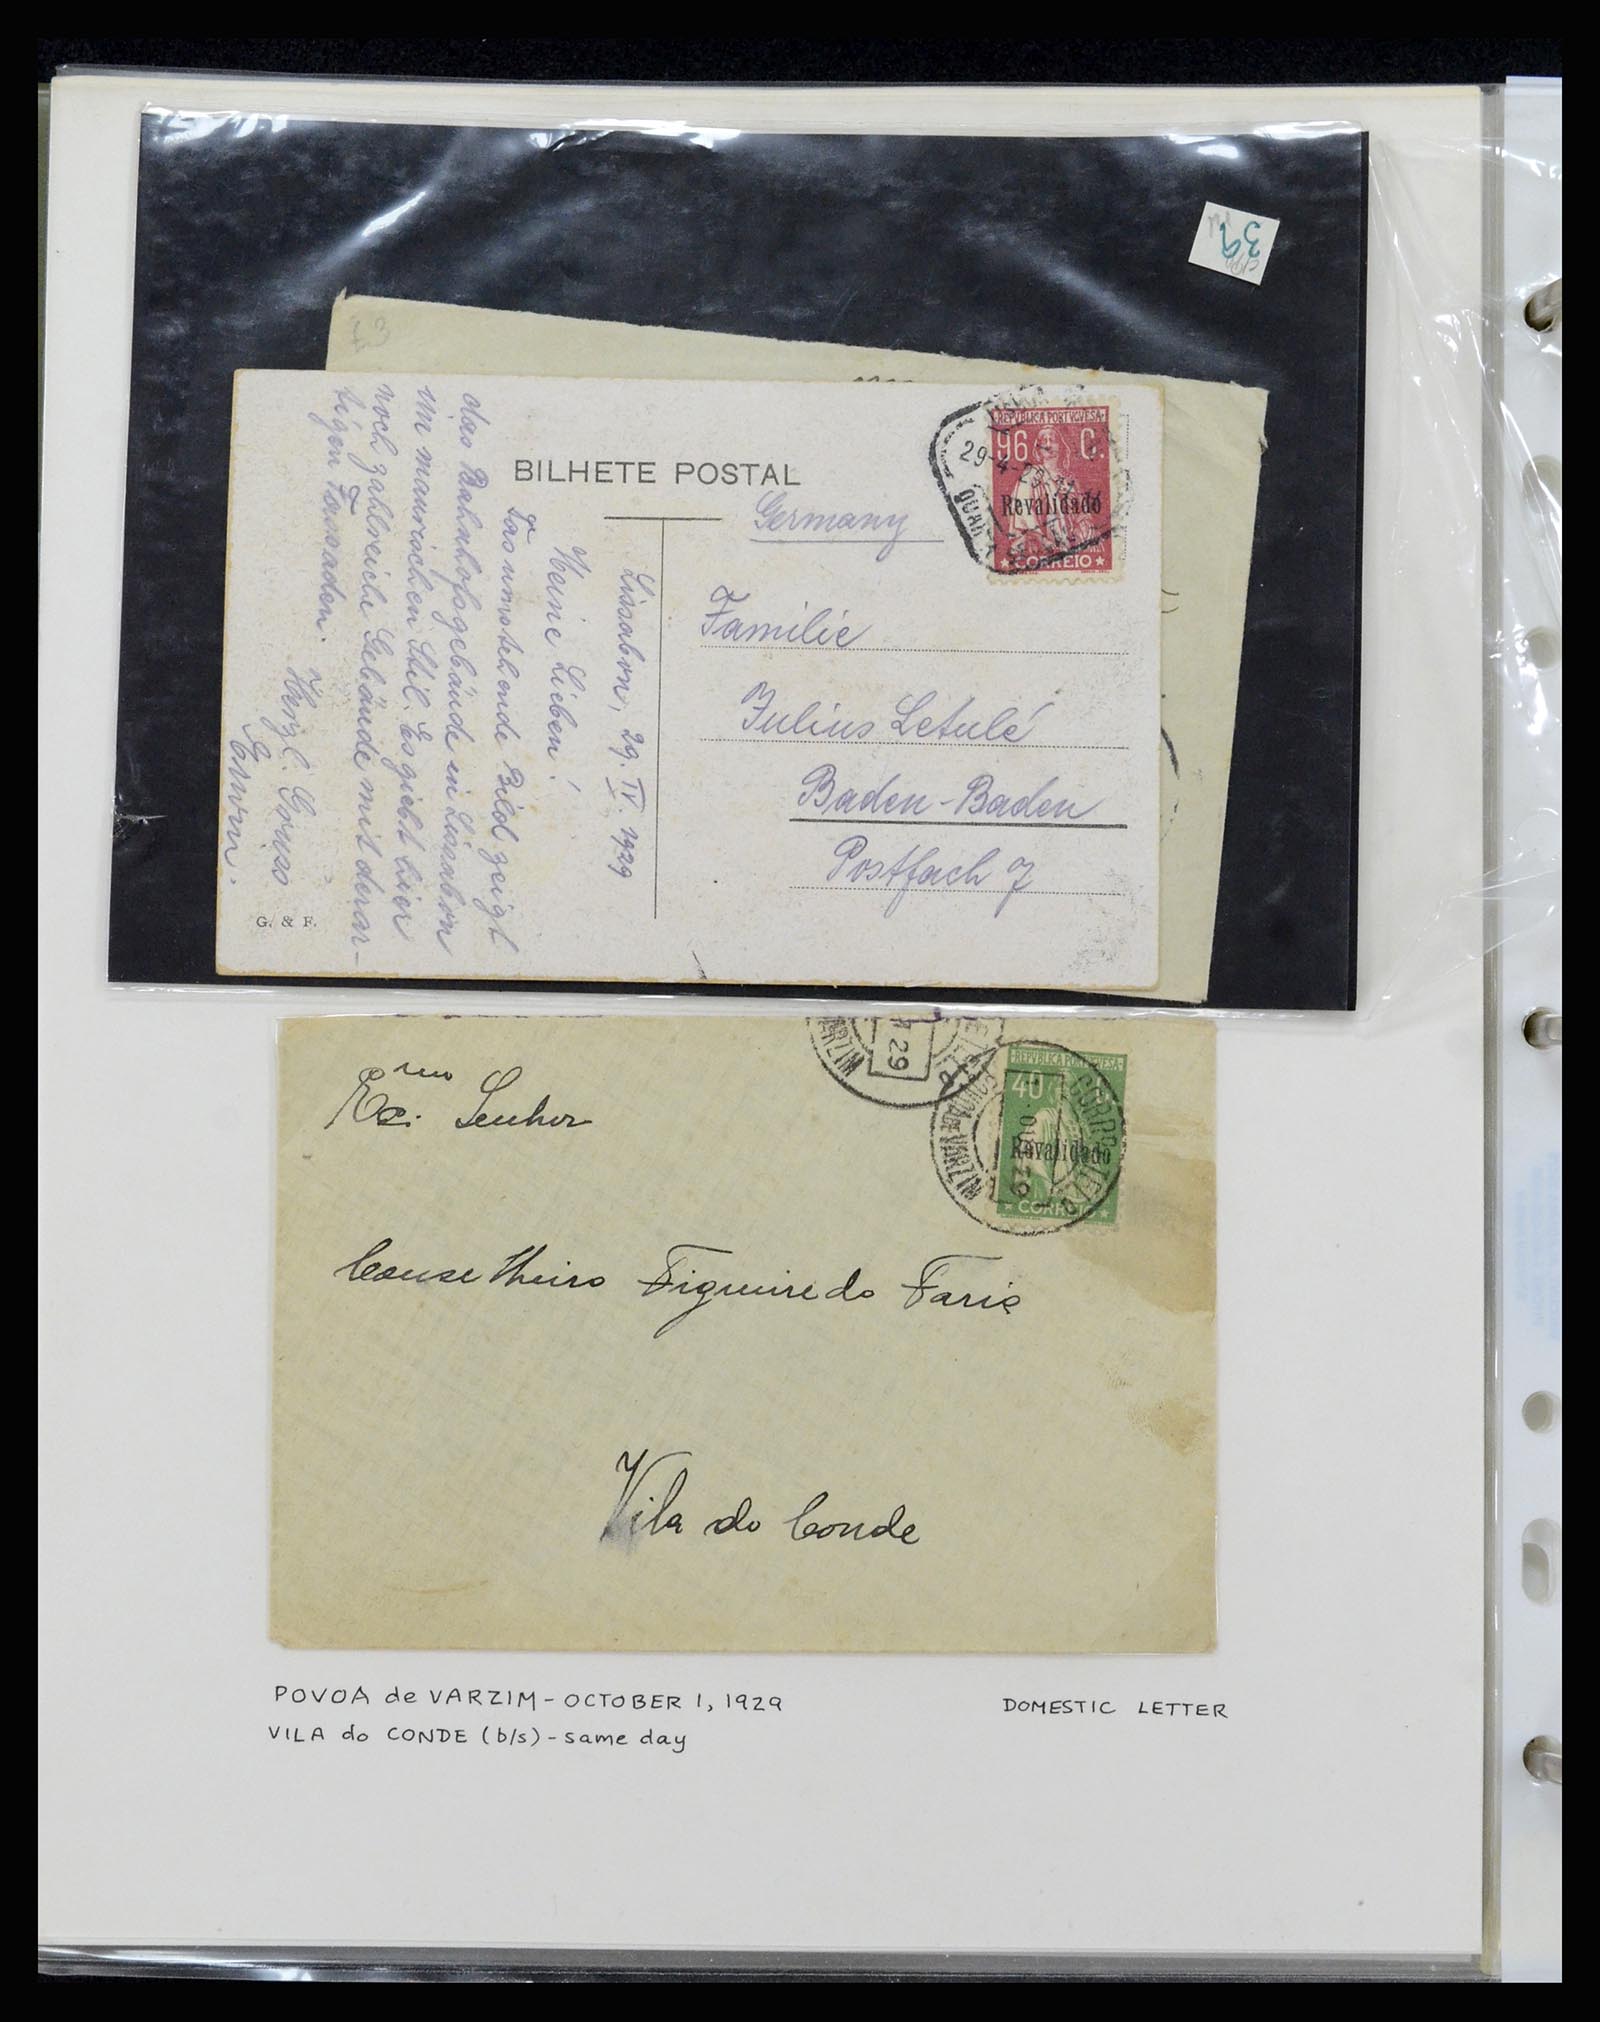 39
BILHETE POSTAL
REPUBLICA PORTUGUESA
96 C.
Revalidado
CORREIO
29-4-29
Germany
Familie
Julius Letulé
Baden-Baden
Postfach 7
Lissabon, 29. IV. 1929
Meine Lieben!
Das umstehende Bild zeigt
das Bahnhofsgebäude in Lissabon
im maurischen Stil. Es giebt hier
noch zahlreiche Gebäude mit derar-
tigen Fassaden.
Herzl. Gruss
Erwin.
G. & F.
VARZIM
29
REPUBLICA PORTUGUESA
40 C.
Revalidado
CORREIO
POVOA DE VARZIM
29
Exmo. Senhor
Conselheiro Figueiredo Faria
Vila do Conde
POVOA de VARZIM - OCTOBER 1, 1929
DOMESTIC LETTER
VILA do CONDE (b/s) - same day